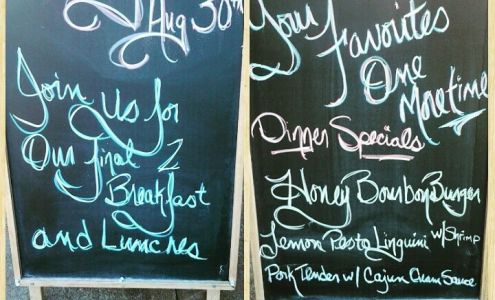 Aug 30th
Join us for
Our final 2
Breakfast
and Lunches
Your Favorites
One
More time
Dinner Specials
Honey Bourbon Burger
Lemon Pesto Linguini w/ Shrimp
Pork Tender w/ Cajun Cream Sauce